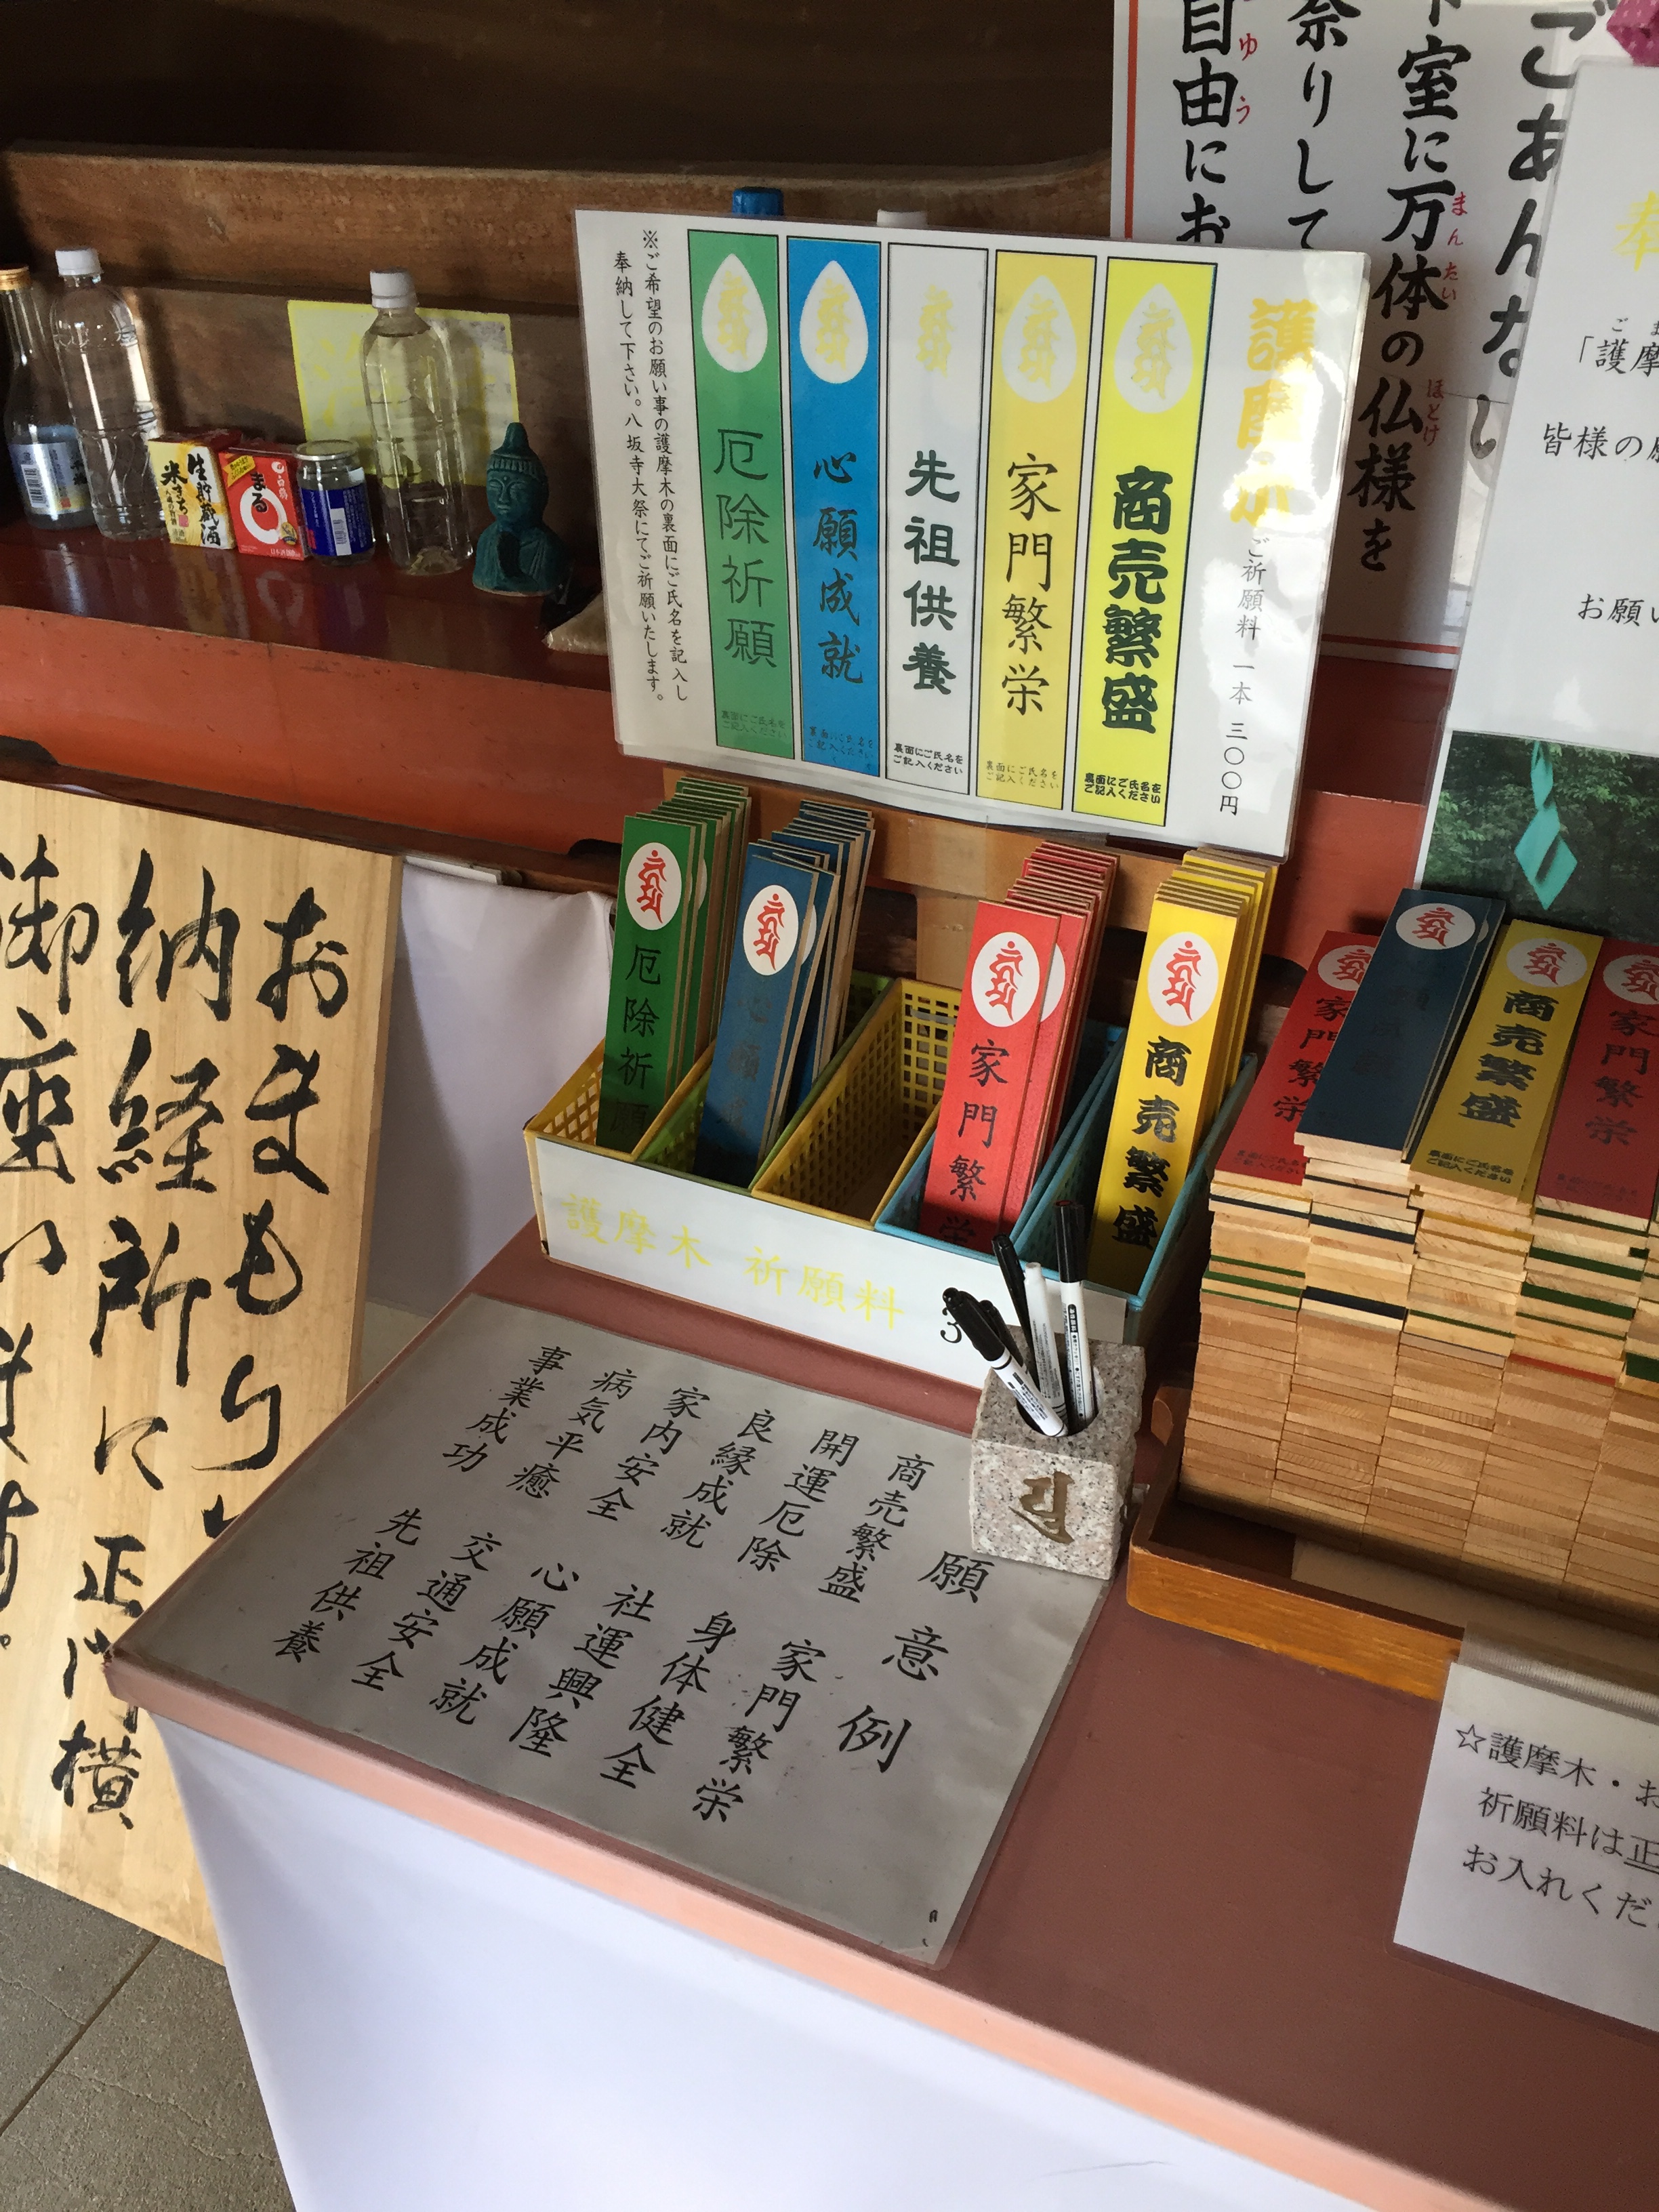 ごあんない
室に万体の仏様を
まんたい
ほとけ
祭りして
自由にお
ゆう
護摩木
ご祈願料 一本 三〇〇円
商売繁盛
裏面にご氏名を
ご記入ください
家門繁栄
裏面にご氏名を
ご記入ください
先祖供養
裏面にご氏名を
ご記入ください
心願成就
裏面にご氏名を
ご記入ください
厄除祈願
裏面にご氏名を
ご記入ください
※ご希望のお願い事の護摩木の裏面にご氏名を記入し
奉納して下さい。八坂寺大祭にてご祈願いたします。
奉
「護摩
皆様の
お願い
生貯蔵酒
米だけの
まる
厄除祈願
心願
家門繁栄
商売繁盛
家門繁栄
商売繁盛
裏面にご氏名を
ご記入ください
家門繁栄
護摩木 祈願料
3
願意例
商売繁盛 家門繁栄
開運厄除 身体健全
良縁成就 社運興隆
家内安全 心願成就
病気平癒 交通安全
事業成功 先祖供養
おまもり
納経所に正門横
御座い
☆護摩木・お
祈願料は正
お入れくだ